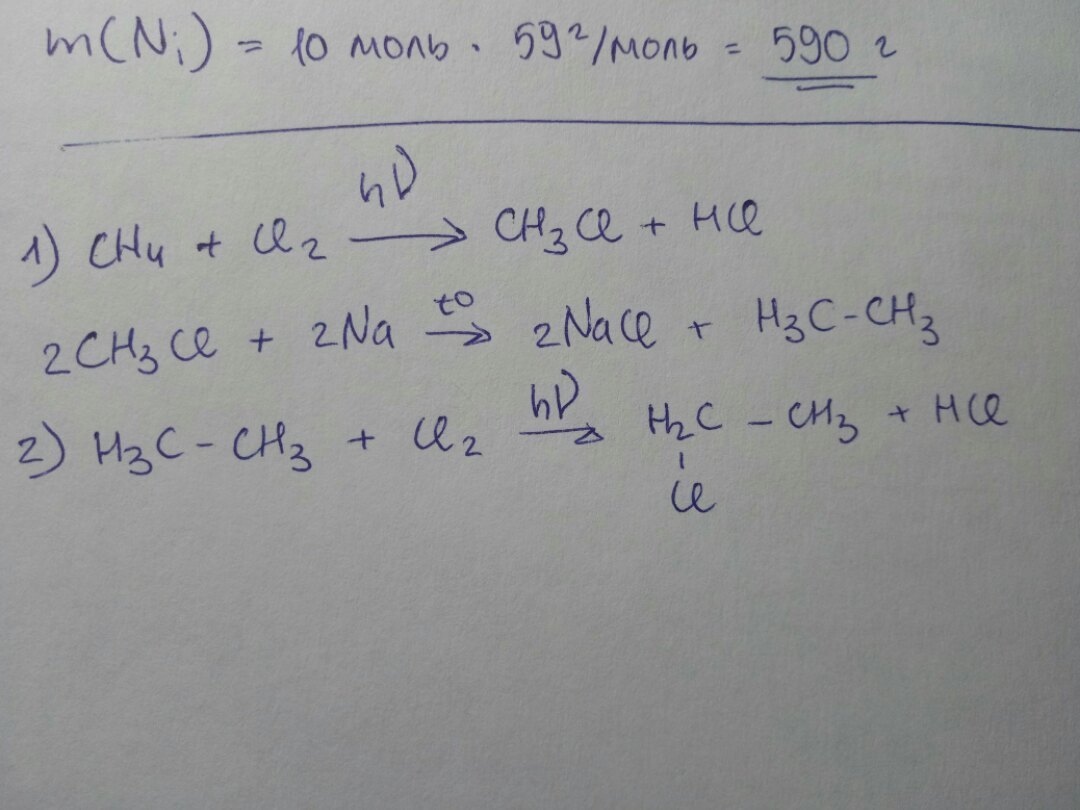 m(Ni) = 10 моль · 59 г/моль = 590 г
1) CH4 + Cl2 hν → CH3Cl + HCl
2CH3Cl + 2Na t° → 2NaCl + H3C-CH3
2) H3C-CH3 + Cl2 hν → H2C-CH3 + HCl
Cl